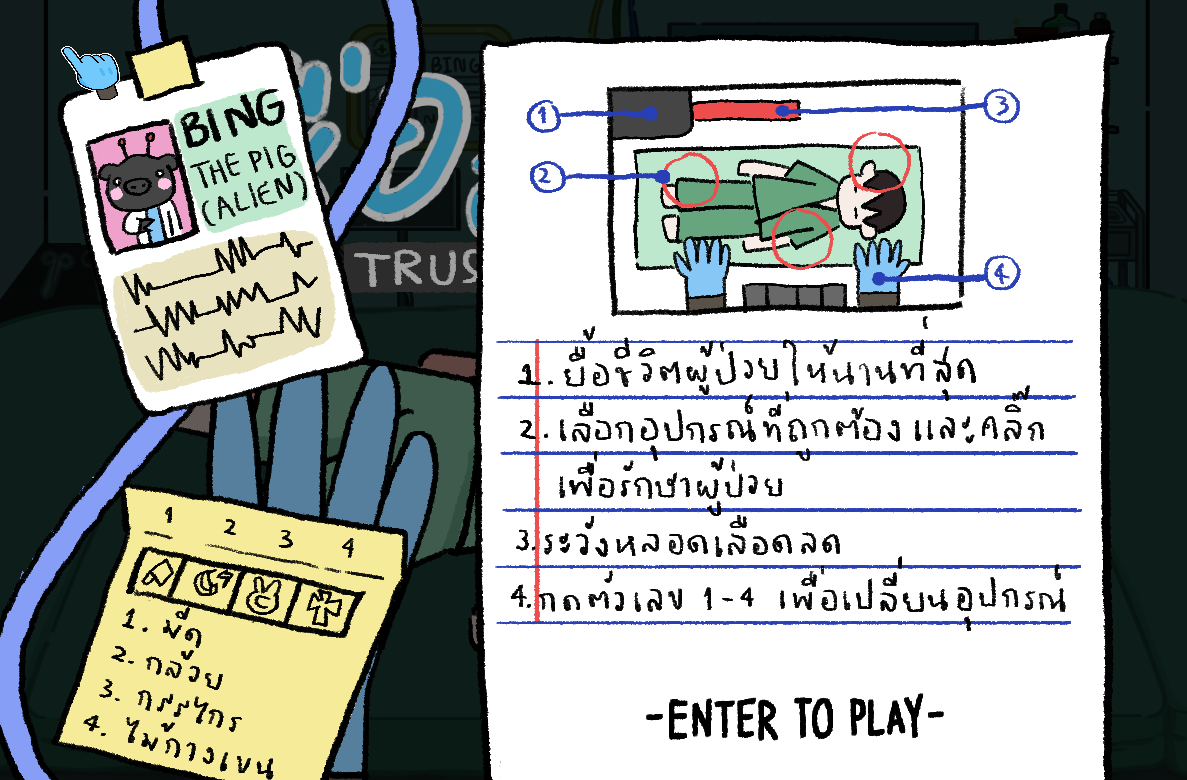 BING
THE PIG
(ALIEN)
TRUS
1
2
3
4
1. มีด
2. กล้วย
3. กรรไกร
4. ไม้กางเขน
1
3
2
4
1. ยื้อชีวิตผู้ป่วยให้นานที่สุด
2. เลือกอุปกรณ์ที่ถูกต้อง และคลิ๊ก
เพื่อรักษาผู้ป่วย
3. ระวังหลอดเลือดลด
4. กดตัวเลข 1-4 เพื่อเปลี่ยนอุปกรณ์
-ENTER TO PLAY-